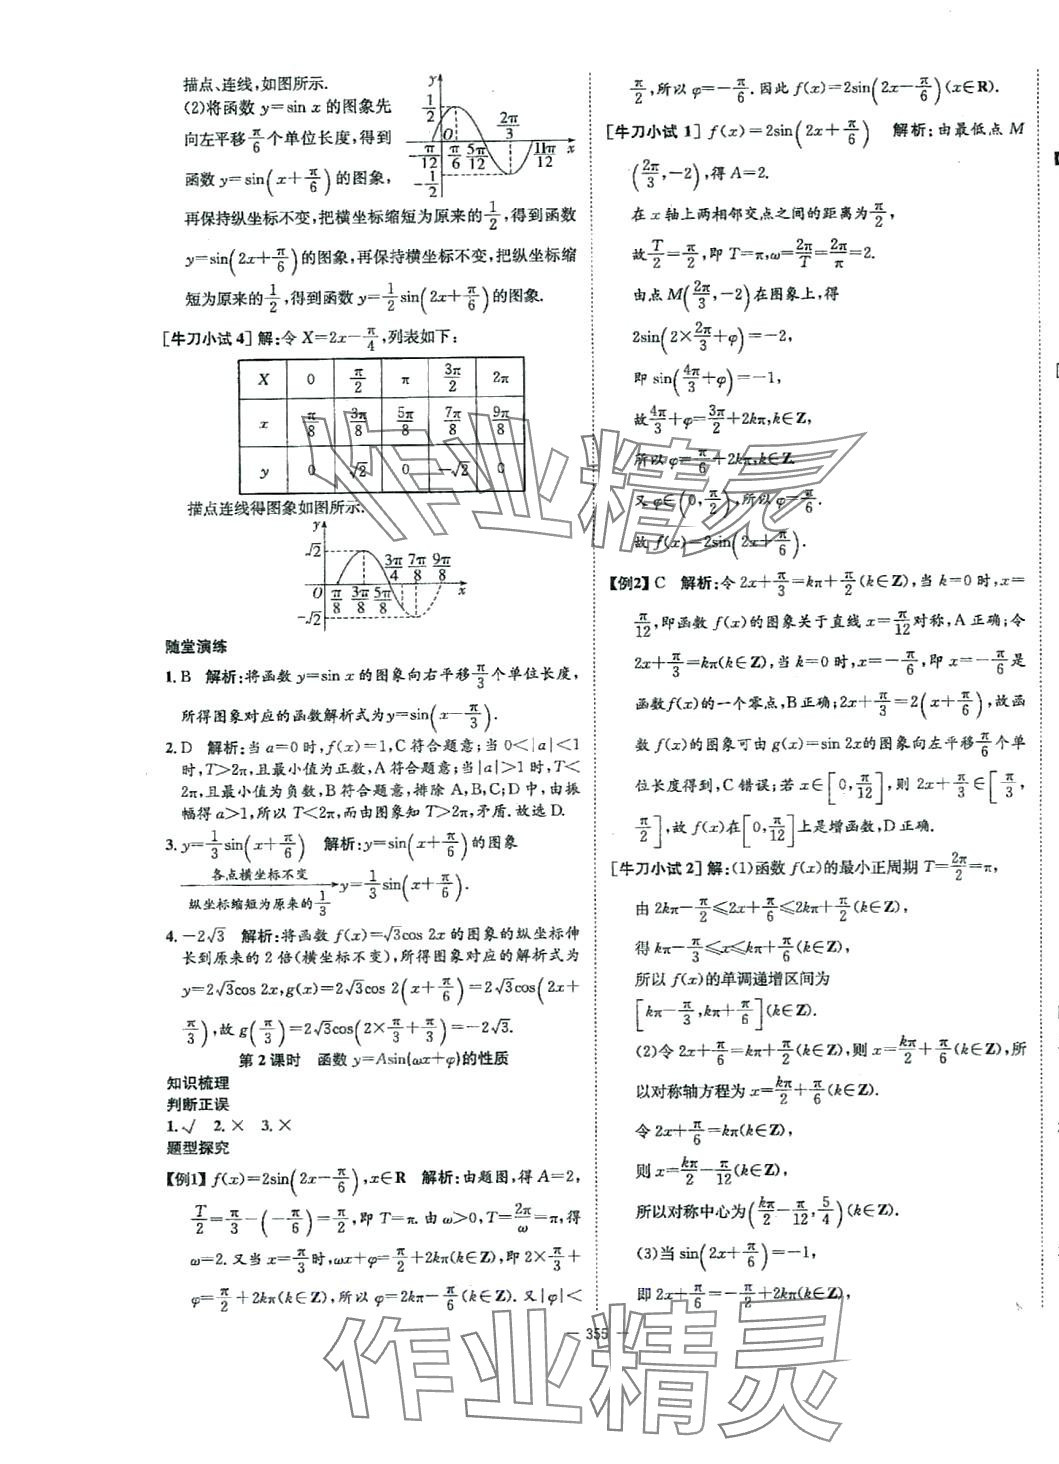 描点、连线,如图所示.
(2)将函数 y=sin x 的图象先
向左平移 π/6 个单位长度,得到
函数 y=sin(x+π/6) 的图象,
y 1/2 O -1/2 -π/12 π/6 5π/12 2π/3 11π/12 x
再保持纵坐标不变,把横坐标缩短为原来的 1/2 ,得到函数
y=sin(2x+π/6)的图象,再保持横坐标不变,把纵坐标缩
短为原来的 1/2 ,得到函数 y=1/2 sin(2x+π/6)的图象.
[牛刀小试 4] 解:令 X=2x-π/4,列表如下:
X 0 π/2 π 3π/2 2π
x π/8 3π/8 5π/8 7π/8 9π/8
y 0 √2 0 -√2 0
描点连线得图象如图所示.
y √2 O -√2 π/8 3π/8 5π/8 3π/4 7π/8 9π/8 x
随堂演练
1. B 解析:将函数 y=sin x 的图象向右平移 π/3 个单位长度,
所得图象对应的函数解析式为 y=sin(x-π/3).
2. D 解析:当 a=0 时,f(x)=1,C 符合题意;当 0<|a|<1
时,T>2π,且最小值为正数,A 符合题意;当|a|>1 时,T<
2π,且最小值为负数,B 符合题意,排除 A,B,C;D 中,由振
幅得 a>1,所以 T<2π,而由图象知 T>2π,矛盾.故选 D.
3. y=1/3 sin(x+π/6) 解析:y=sin(x+π/6)的图象
各点横坐标不变
纵坐标缩短为原来的 1/3 → y=1/3 sin(x+π/6).
4. -2√3 解析:将函数 f(x)=√3cos 2x 的图象的纵坐标伸
长到原来的 2 倍(横坐标不变),所得图象对应的解析式为
y=2√3cos 2x,g(x)=2√3cos 2(x+π/6)=2√3cos(2x+
π/3),故 g(π/3)=2√3cos(2×π/3+π/3)=-2√3.
第 2 课时 函数 y=Asin(ωx+φ)的性质
知识梳理
判断正误
1. √ 2. × 3. ×
题型探究
【例1】 f(x)=2sin(2x-π/6),x∈R 解析:由题图,得 A=2,
T/2=π/3-(-π/6)=π/2,即 T=π.由 ω>0,T=2π/ω=π,得
ω=2.又当 x=π/3时,ωx+φ=π/2+2kπ(k∈Z),即 2×π/3+
φ=π/2+2kπ(k∈Z),所以 φ=2kπ-π/6(k∈Z).又|φ|<
π/2,所以 φ=-π/6.因此 f(x)=2sin(2x-π/6)(x∈R).
[牛刀小试 1] f(x)=2sin(2x+π/6) 解析:由最低点 M
(2π/3,-2),得 A=2.
在 x 轴上两相邻交点之间的距离为 π/2,
故 T/2=π/2,即 T=π,ω=2π/T=2π/π=2.
由点 M(2π/3,-2)在图象上,得
2sin(2×2π/3+φ)=-2,
即 sin(4π/3+φ)=-1,
故 4π/3+φ=3π/2+2kπ,k∈Z,
所以 φ=π/6+2kπ,k∈Z.
又 φ∈(0,π/2),所以 φ=π/6.
故 f(x)=2sin(2x+π/6).
【例2】 C 解析:令 2x+π/3=kπ+π/2(k∈Z),当 k=0 时,x=
π/12,即函数 f(x)的图象关于直线 x=π/12对称,A 正确;令
2x+π/3=kπ(k∈Z),当 k=0 时,x=-π/6,即 x=-π/6 是
函数 f(x)的一个零点,B 正确;2x+π/3=2(x+π/6),故函
数 f(x)的图象可由 g(x)=sin 2x的图象向左平移 π/6 个单
位长度得到,C 错误;若 x∈[0,π/12],则 2x+π/3∈[π/3,
π/2],故 f(x)在[0,π/12]上是增函数,D 正确.
[牛刀小试 2] 解:(1)函数 f(x)的最小正周期 T=2π/2=π,
由 2kπ-π/2≤2x+π/6≤2kπ+π/2(k∈Z),
得 kπ-π/3≤x≤kπ+π/6(k∈Z),
所以 f(x)的单调递增区间为
[kπ-π/3,kπ+π/6](k∈Z).
(2)令 2x+π/6=kπ+π/2(k∈Z),则 x=kπ/2+π/6(k∈Z),所
以对称轴方程为 x=kπ/2+π/6(k∈Z).
令 2x+π/6=kπ(k∈Z),
则 x=kπ/2-π/12(k∈Z),
所以对称中心为(kπ/2-π/12,5/4)(k∈Z).
(3)当 sin(2x+π/6)=-1,
即 2x+π/6=-π/2+2kπ(k∈Z),
— 355 —
作业精灵
作业精灵